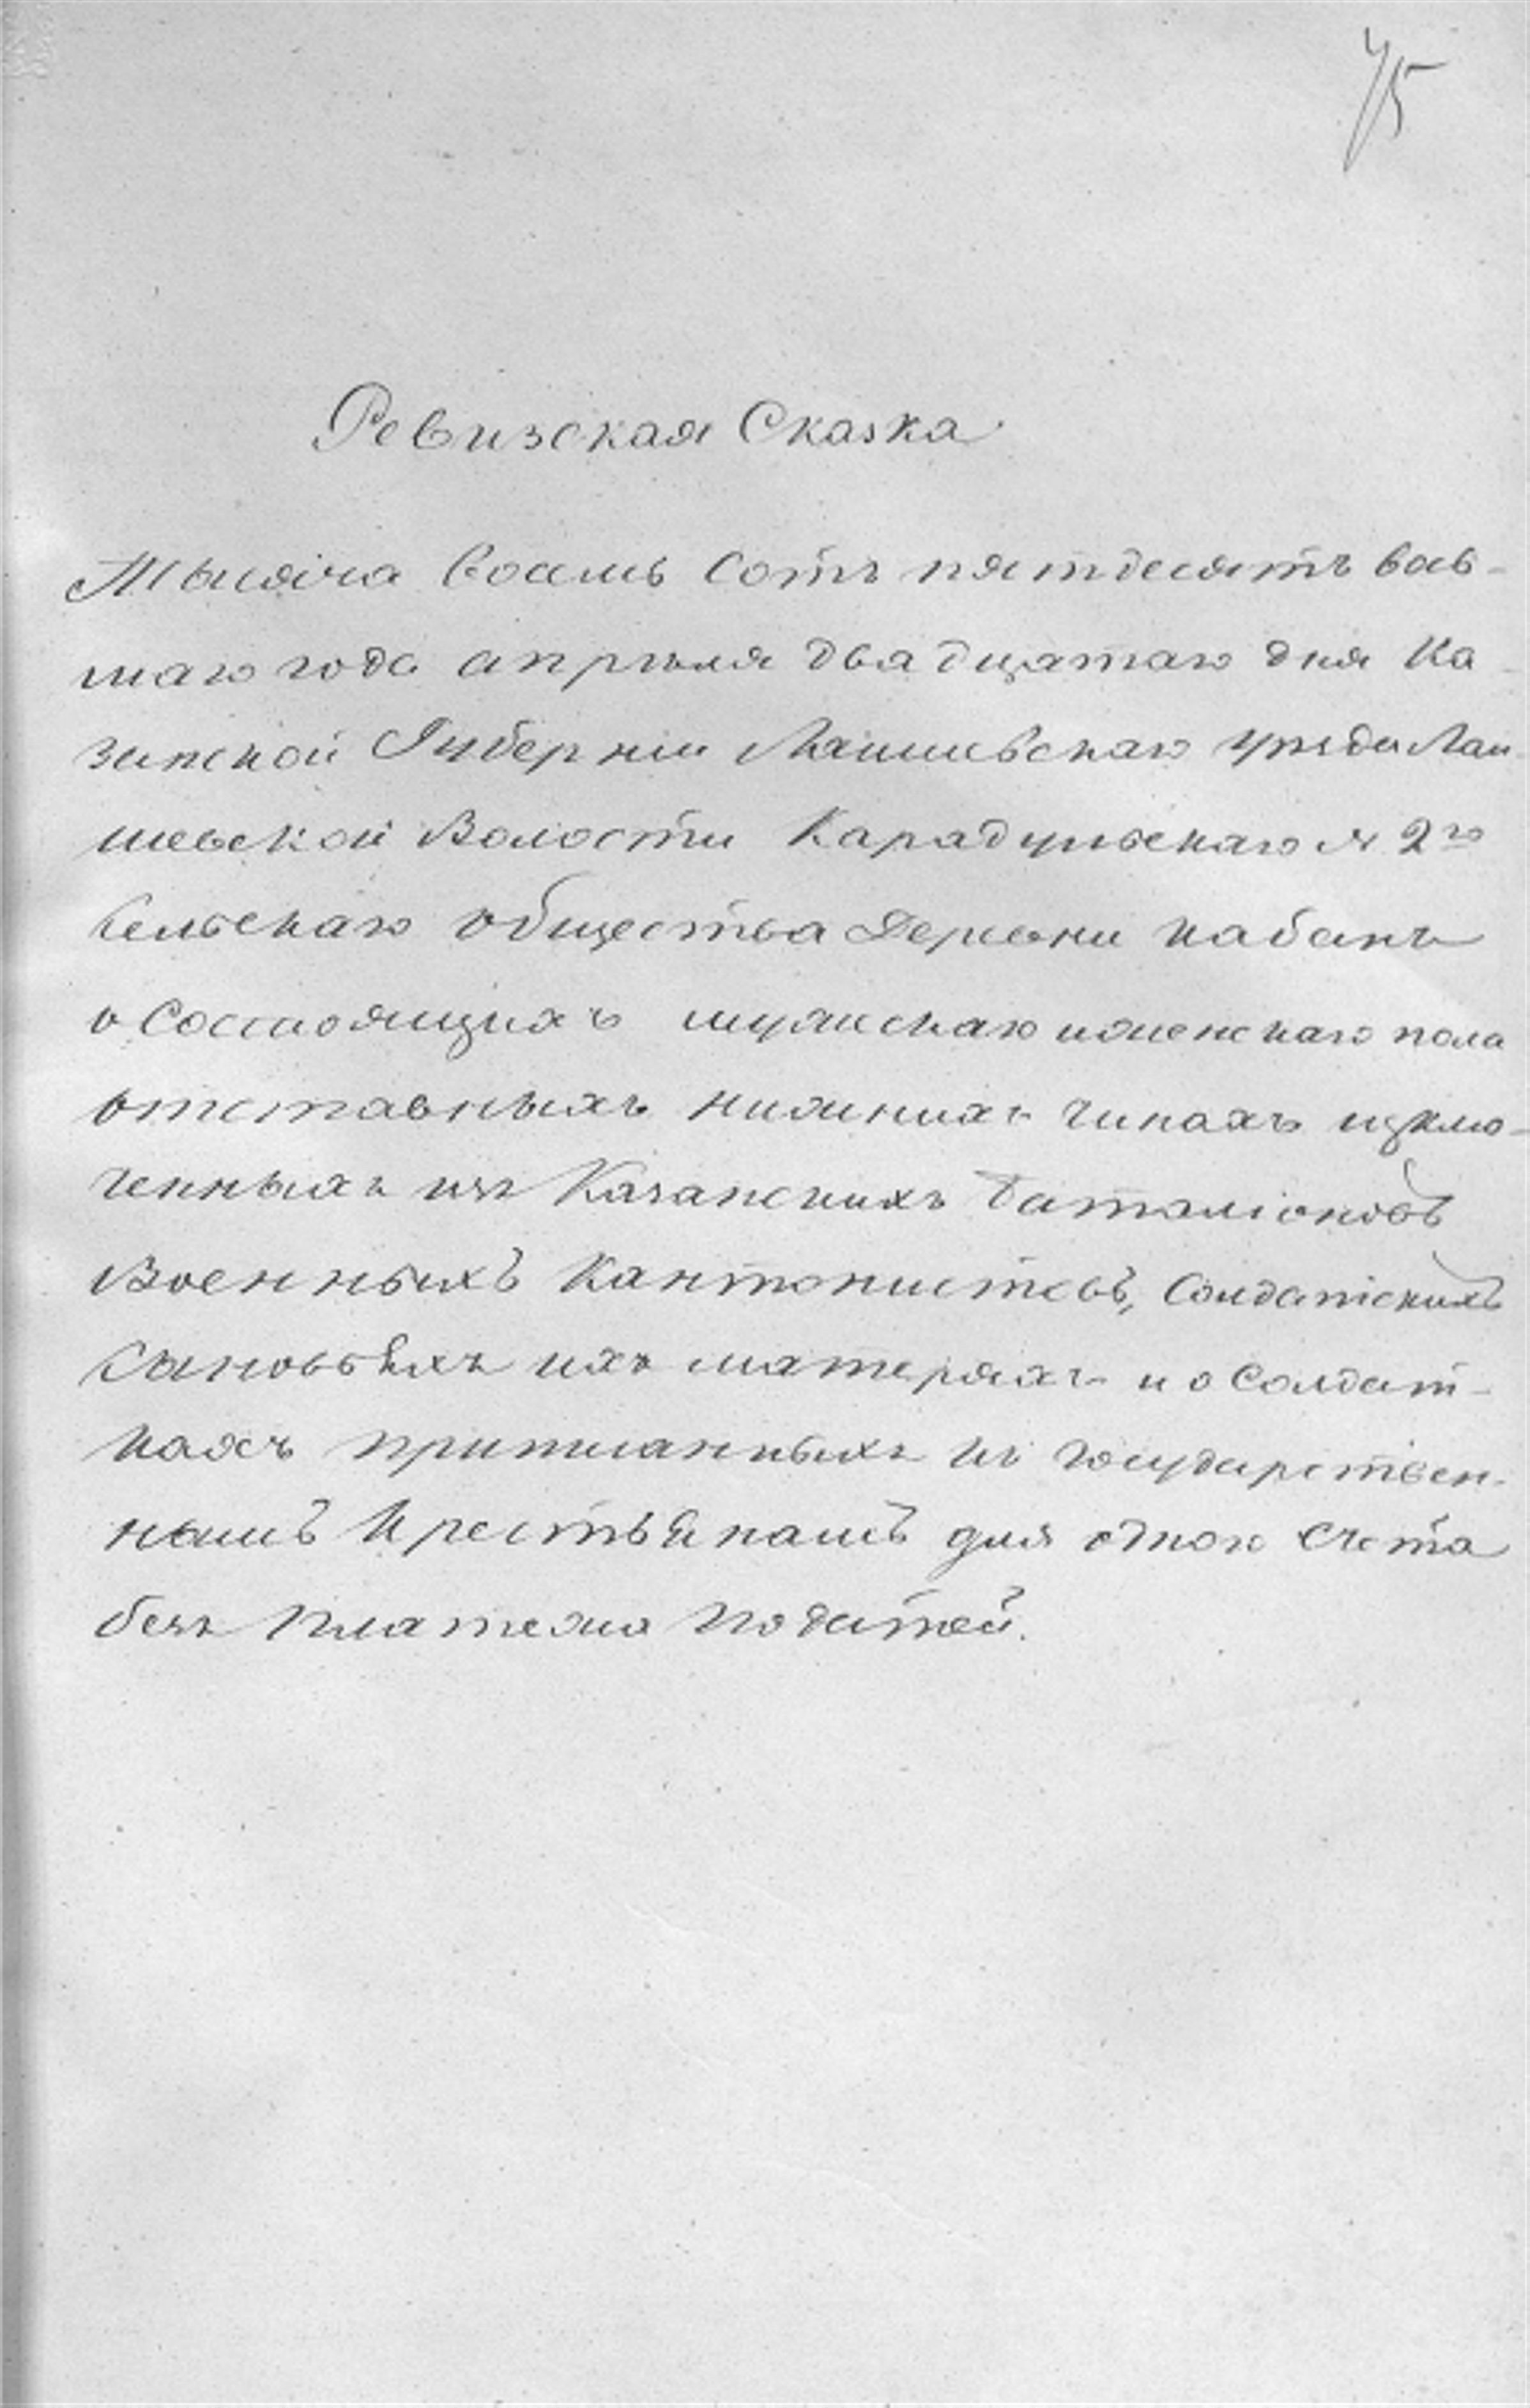 75
Ревизская Сказка
Тысяча восемь сотъ пятдесятъ вось-
маго года апрѣля двадцатаго дня Ка-
занской Губерніи Лаишевскаго уѣзда Лаи-
шевской Волости Карадульскаго № 2го
сельскаго общества Деревни Кабанъ
о Состоящихъ мужскаго и женскаго пола
отставныхъ нижнихъ чинахъ изклю-
ченныхъ изъ Казанскихъ баталіоновъ
Военныхъ Кантонистовъ, Солдатскихъ
Сыновьяхъ ихъ матеряхъ и о Солдат-
кахъ приписанныхъ къ государствен-
нымъ Крестьянамъ для одного Счета
безъ Платежа податей.